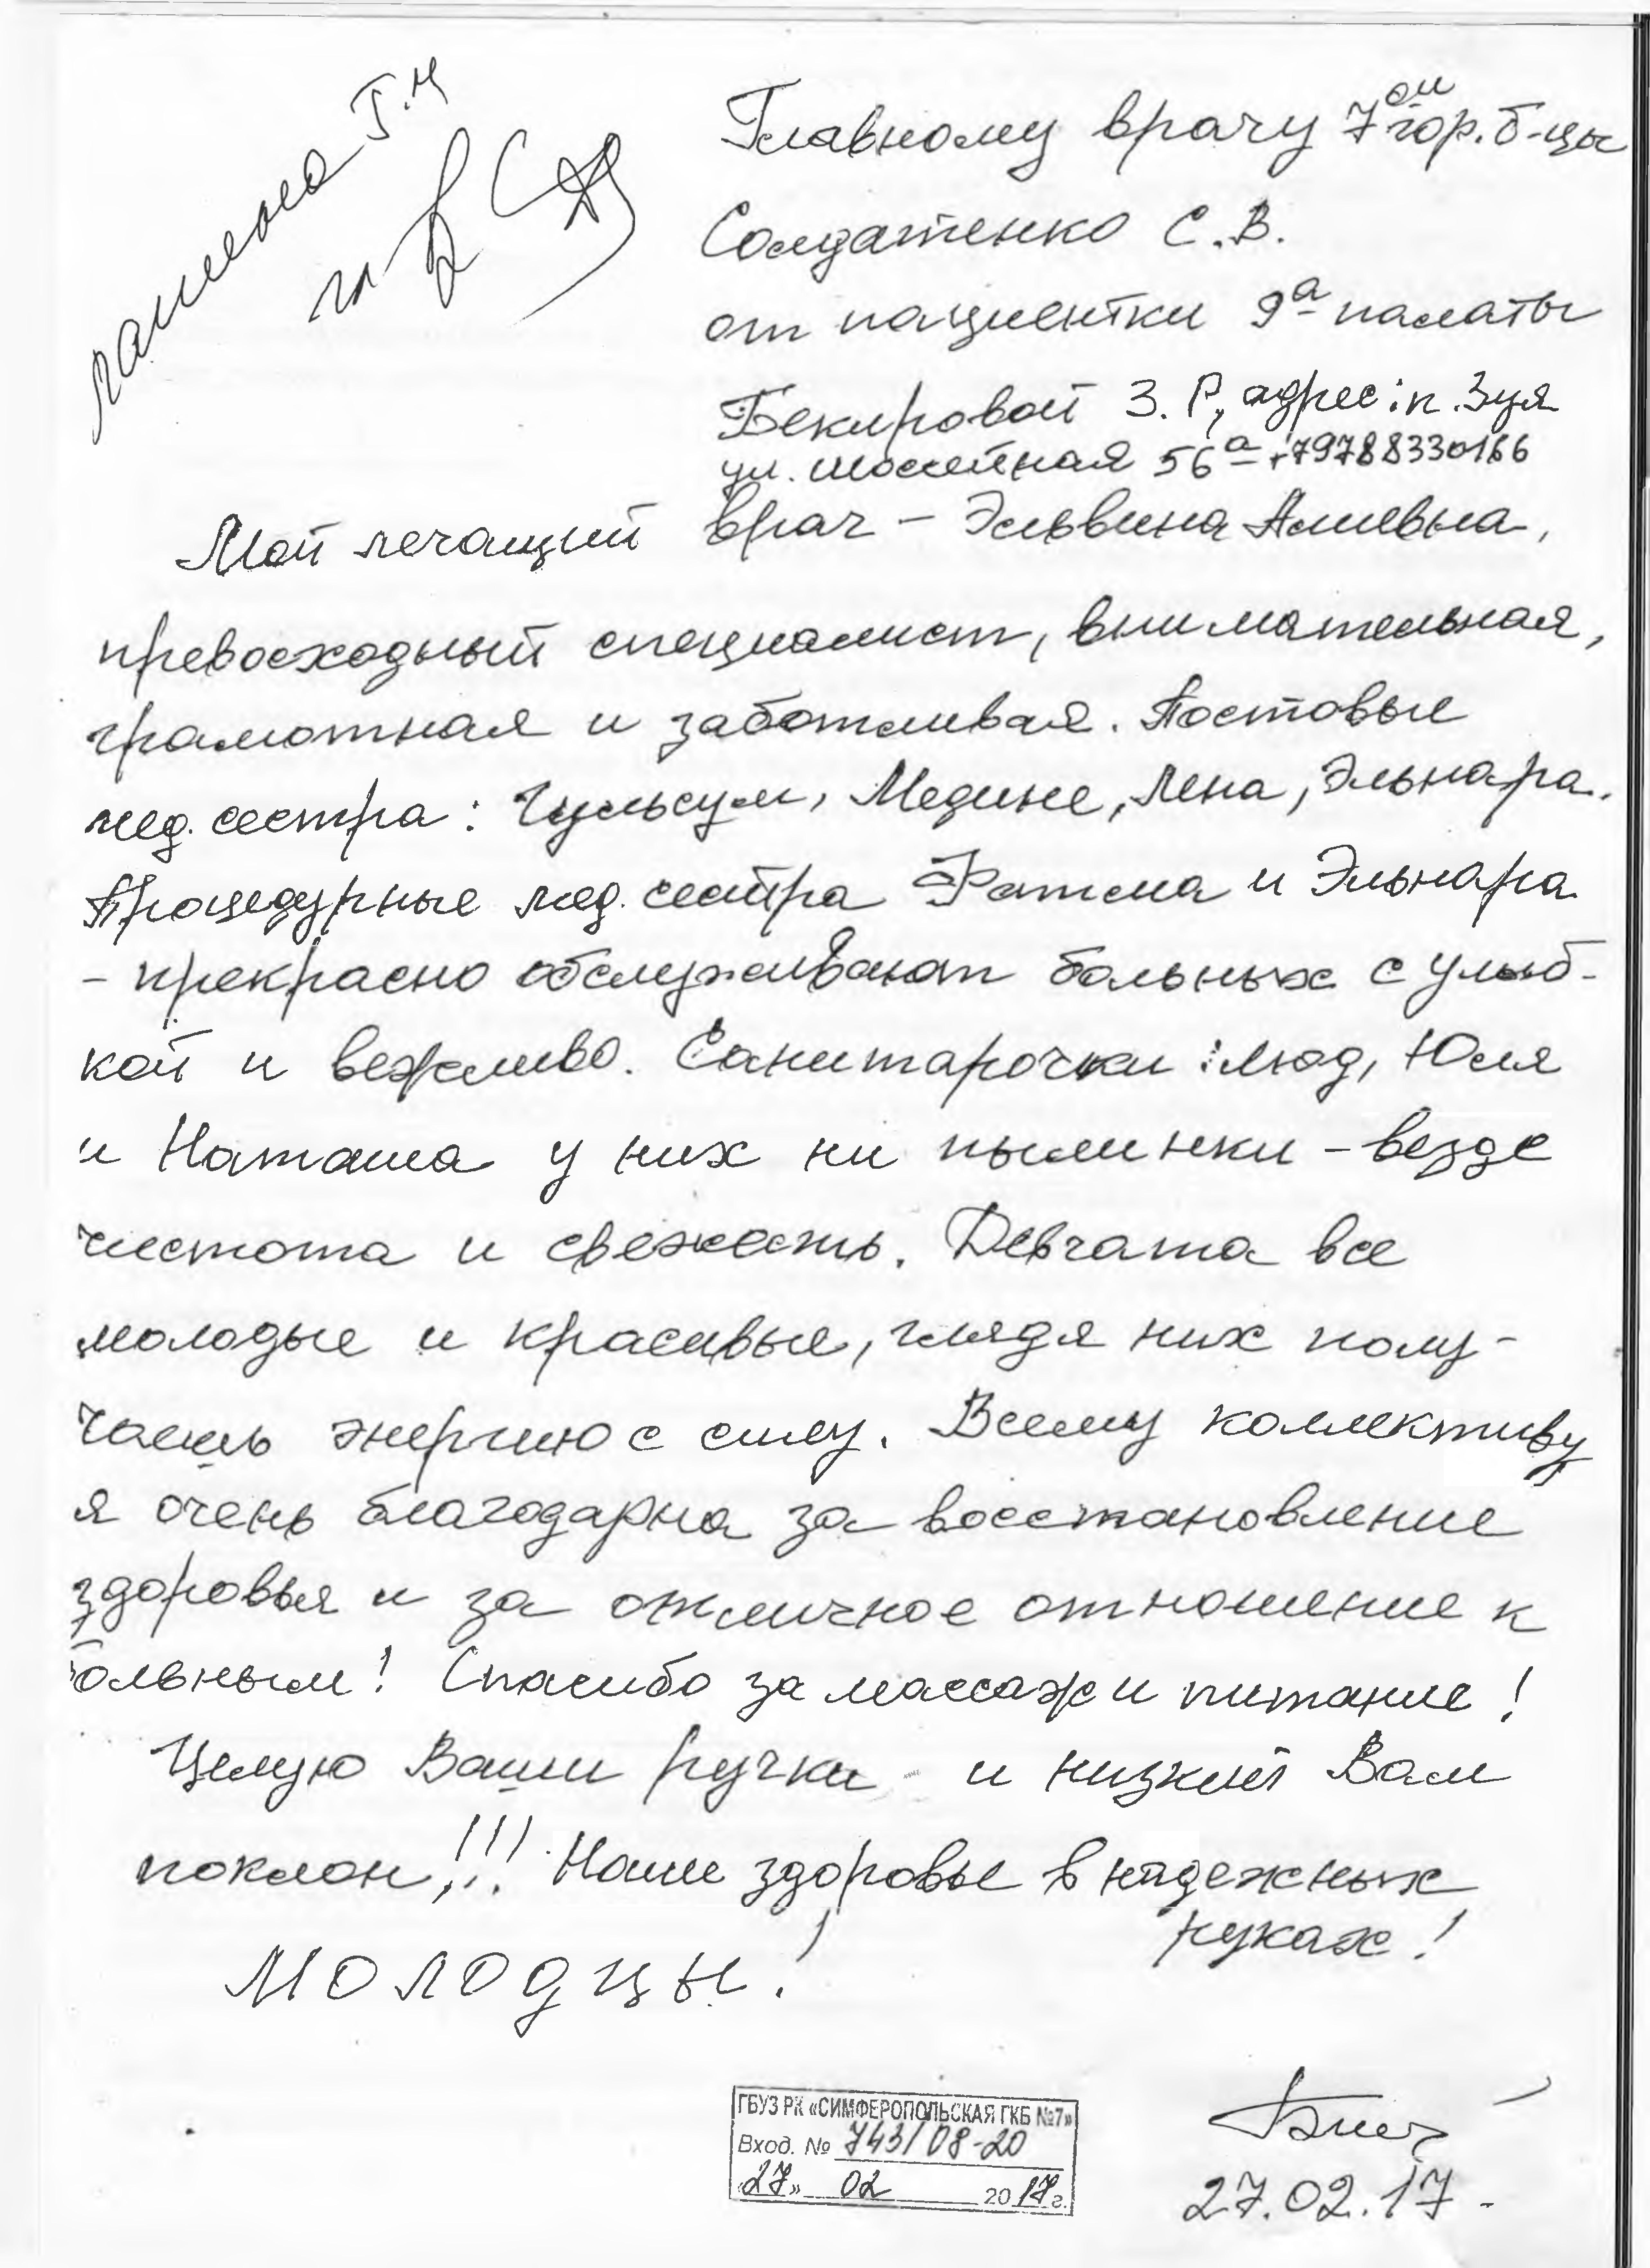 Главному врачу 7ой гор. б-цы
Солдатенко С.В.
от пациентки 9а палаты
Бекировой З. Р, адрес: п. Зуя
ул. Шоссейная 56а +79788330166
Мой лечащий врач – Эльвина Алиевна,
превосходный специалист, внимательная,
грамотная и заботливая. Постовые
мед. сестра: Гульсум, Медине, Лена, Эльнара.
Процедурные мед. сестра Фатма и Эльнара
– прекрасно обслуживают больных с улыб-
кой и вежливо. Санитарочки: Люд, Юля
и Наташа у них ни пылинки – везде
чистота и свежесть. Девчата все
молодые и красивые, глядя них полу-
чаешь энергию с силу. Всему коллективу
я очень благодарна за восстановление
здоровья и за отличное отношение к
больным! Спасибо за массаж и питание!
Целую Ваши ручки и низкий Вам
поклон!!! Наше здоровье в надежных
руках!
МОЛОДЦЫ!
ГБУЗ РК «СИМФЕРОПОЛЬСКАЯ ГКБ №7»
Вход. № 743/08-20
«27» 02 2017г.
27.02.17